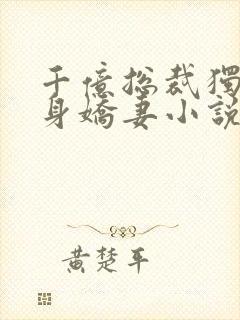 千億總裁獨
身嬌妻小說
黃楚平